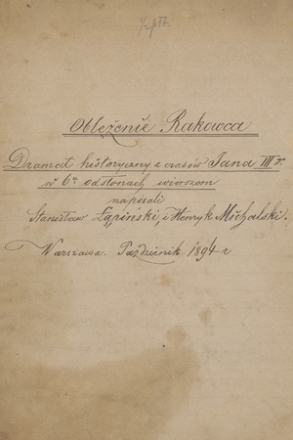 Oblężenie Rakowca
Dramat historyczny z czasów Jana III go
w 6u odsłonach wierszem
napisali
Stanisław Łąpiński, i Henryk Michalski.
Warszawa. Październik 1894 r